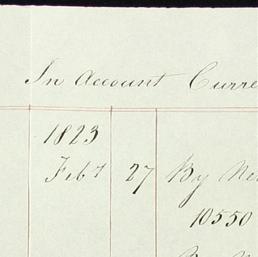 In Account Curre
1823
Feby 27 By Ne
10550